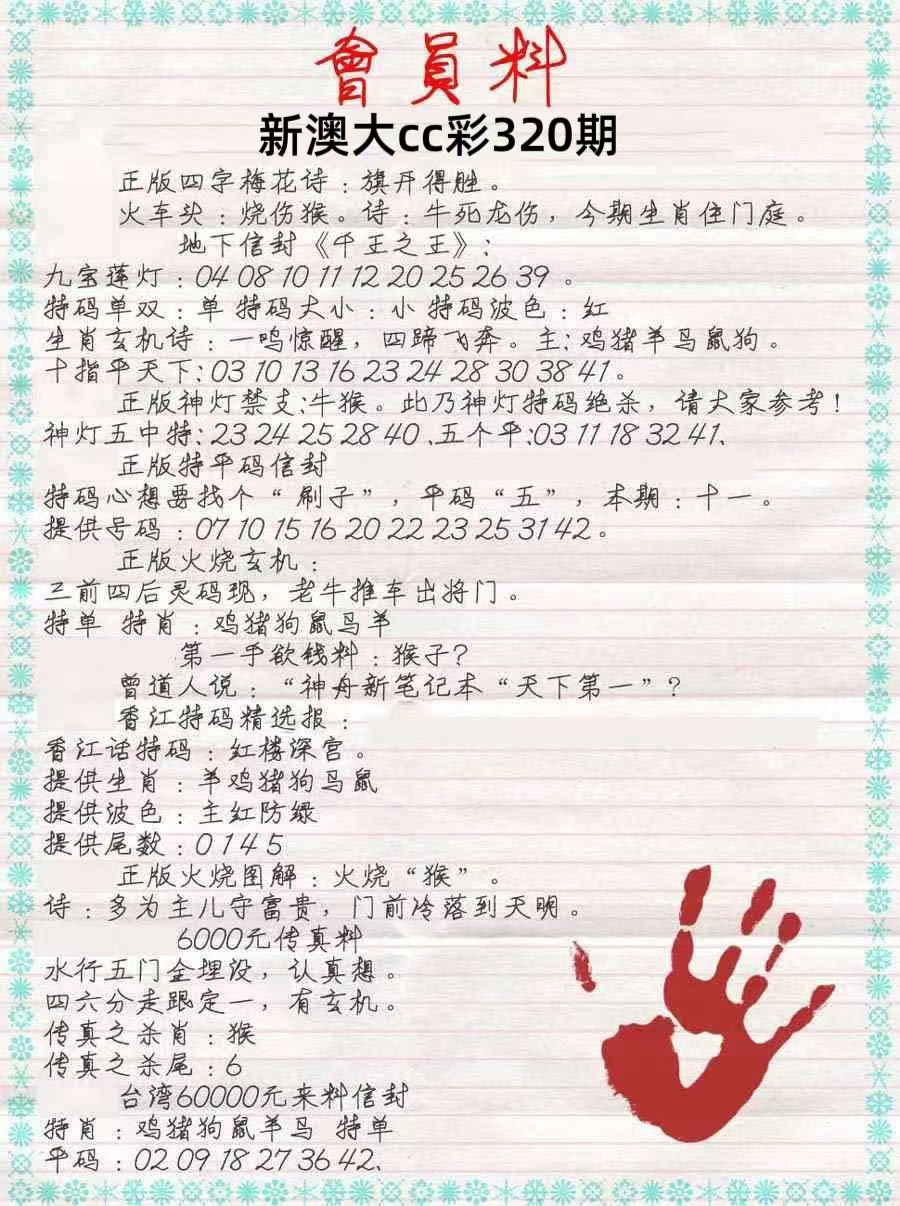 會員料
新澳大cc彩320期
正版四字梅花诗：旗开得胜。
火车头：烧伤猴。诗：牛死龙伤，今期生肖住门庭。
地下信封《千王之王》：
九宝莲灯：04 08 10 11 12 20 25 26 39 。
特码单双：单 特码大小：小 特码波色：红
生肖玄机诗：一鸣惊醒，四蹄飞奔。主：鸡猪羊马鼠狗。
十指平天下：03 10 13 16 23 24 28 30 38 41 。
正版神灯禁支：牛猴。此乃神灯特码绝杀，请大家参考！
神灯五中特：23 24 25 28 40 、五个平：03 11 18 32 41、
正版特平码信封
特码心想要找个“刷子”，平码“五”，本期：十一。
提供号码：07 10 15 16 20 22 23 25 31 42 。
正版火烧玄机：
三前四后灵码现，老牛推车出将门。
特单 特肖：鸡猪狗鼠马羊
第一手欲钱料：猴子？
曾道人说：“神舟新笔记本“天下第一”？
香江特码精选报：
香江话特码：红楼深宫。
提供生肖：羊鸡猪狗马鼠
提供波色：主红防绿
提供尾数：0 1 4 5
正版火烧图解：火烧“猴”。
诗：多为主儿守富贵，门前冷落到天明。
6000元传真料
水行五门金埋没，认真想。
四六分走跟定一，有玄机。
传真之杀肖：猴
传真之杀尾：6
台湾60000元来料信封
特肖：鸡猪狗鼠羊马 特单
平码：02 09 18 27 36 42、